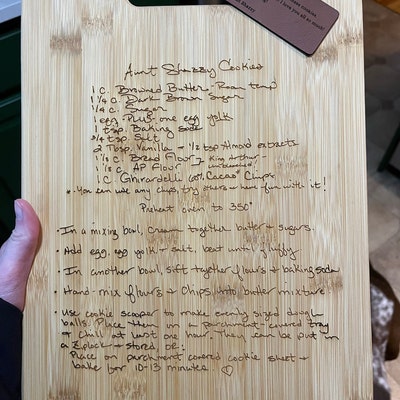 I love you all so much!
Aunt Shazzy Cookies
1 C. Browned Butter - Room temp
1 1/4 C. Dark Brown Sugar
1/4 C. Sugar
1 egg plus one egg yolk
1 tsp. Baking soda
3/4 tsp. Salt
2 Tbsp. Vanilla - 1/2 tsp Almond extracts
1 1/3 C. Bread Flour King Arthur -
1 1/3 C. AP Flour unbleached
1 C. Ghirardelli 60% Cacao Chips
* You can use any chips, try others + have fun with it!
Preheat oven to 350°
• In a mixing bowl, cream together butter + sugars.
• Add egg, egg yolk + salt, beat until fluffy
• In another bowl, sift together flours + baking soda
• Hand-mix flours + Chips into butter mixture
• Use cookie scooper to make evenly sized dough
balls. Place them on a parchment-covered tray
+ chill at least one hour. They can be put in
a Ziplock + stored, or:
Place on parchment covered cookie sheet +
bake for 10-13 minutes ♡